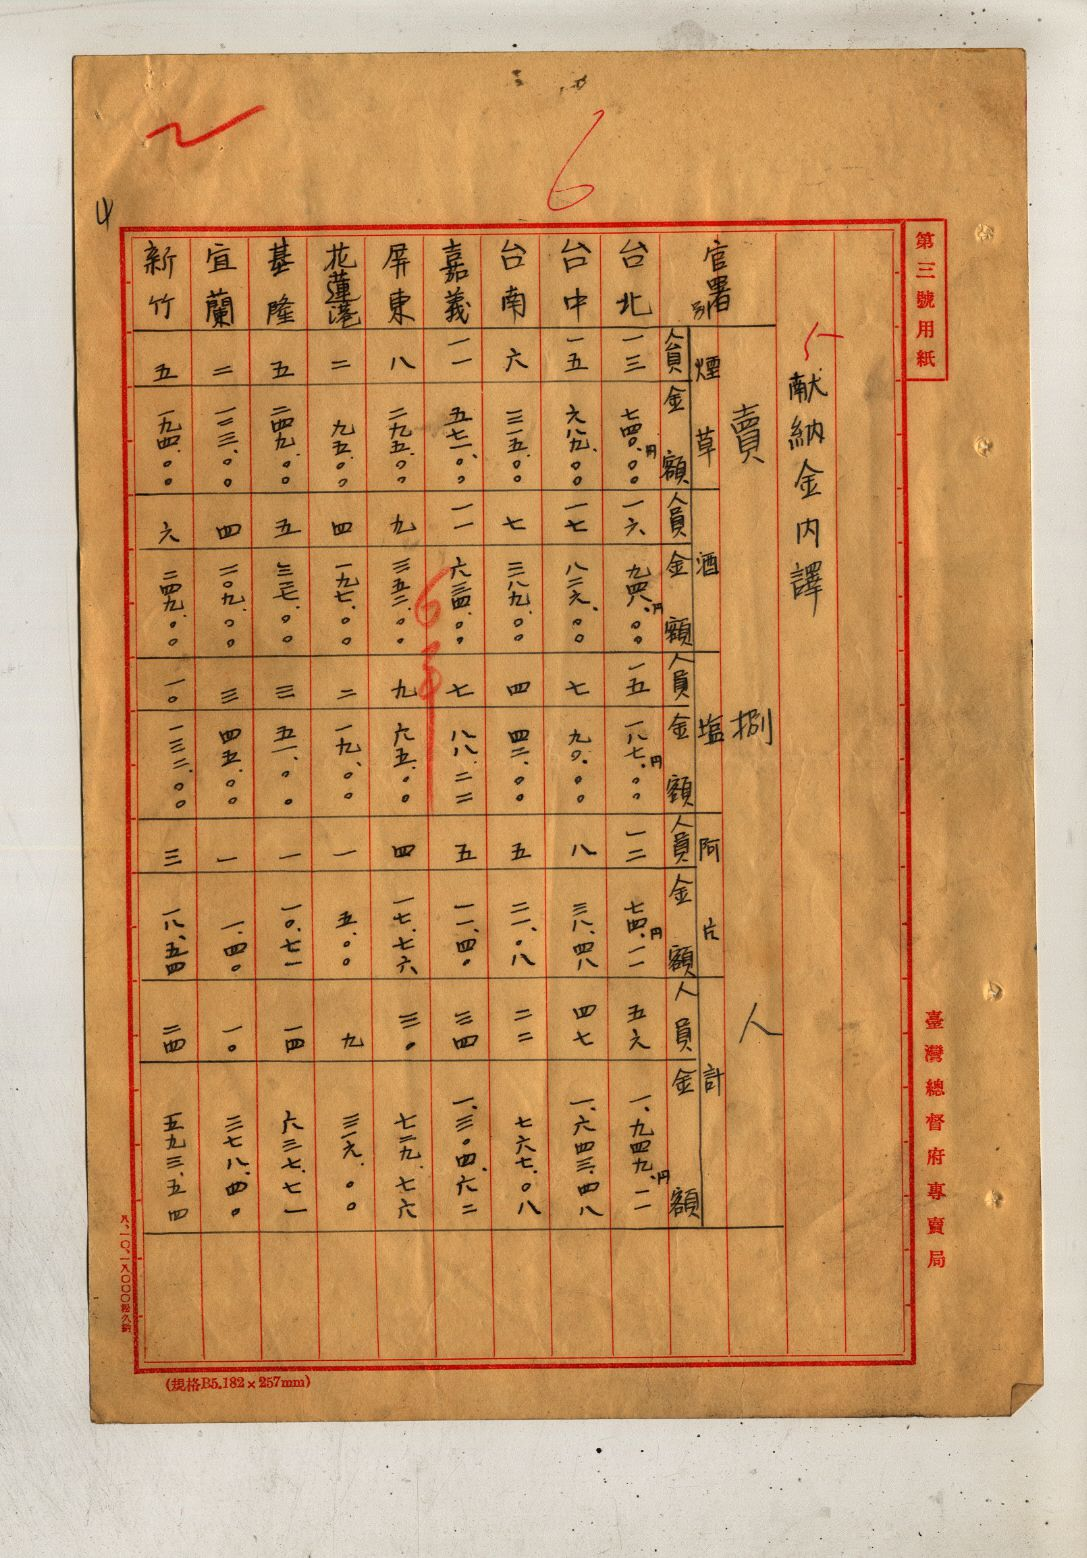 第三號用紙
臺灣總督府專賣局
献納金内譯
賣捌人
官署別
煙草 酒 塩 阿片 計
人員 金額 人員 金額 人員 金額 人員 金額 人員 金額
台北 一三 七四〇.〇〇円 一六 九四八.〇〇円 一五 一八七.〇〇円 一二 七四.一一円 五六 一、九四九.一一円
台中 一五 六八九.〇〇 一七 八二六.〇〇 七 九〇.〇〇 八 三八.四八 四七 一、六四三.四八
台南 六 三一五.〇〇 七 三八九.〇〇 四 四二.〇〇 五 二一.〇八 二二 七六七.〇八
嘉義 一一 五七一.〇〇 一一 六三四.〇〇 七 八八.二二 五 一一.四〇 三四 一、三〇四.六二
屏東 八 二九五.〇〇 九 三五二.〇〇 九 六五.〇〇 四 一七.七六 三〇 七二九.七六
花蓮港 二 九五.〇〇 四 一九七.〇〇 二 一九.〇〇 一 五.〇〇 九 三一六.〇〇
基隆 五 二四九.〇〇 五 三二七.〇〇 三 五一.〇〇 一 一〇.七一 一四 六三七.七一
宜蘭 二 一二三.〇〇 四 二〇九.〇〇 三 四五.〇〇 一 一.四〇 一〇 三七八.四〇
新竹 五 一九四.〇〇 六 二四九.〇〇 一〇 一三二.〇〇 三 一八.五四 二四 五九三.五四
6
(規格B5.182×257mm)